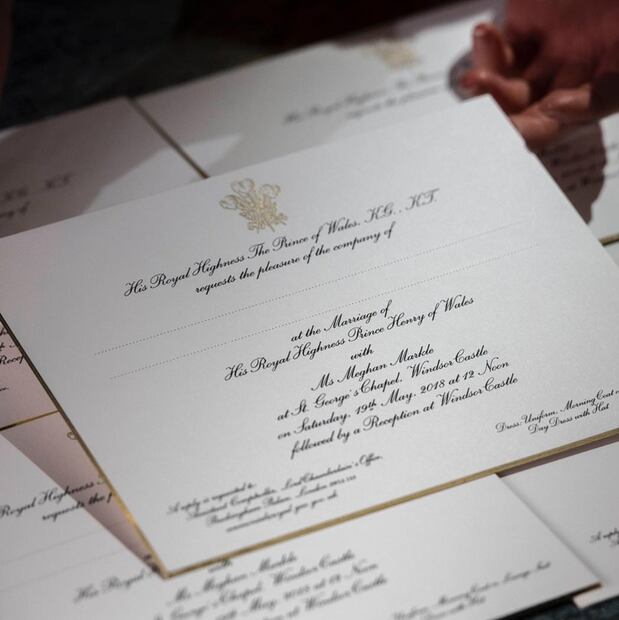 His Royal Highness The Prince of Wales, KG., KT.
requests the pleasure of the company of
at the Marriage of
His Royal Highness Prince Henry of Wales
with
Ms Meghan Markle
at St. George's Chapel, Windsor Castle
on Saturday, 19th May, 2018 at 12 Noon
followed by a Reception at Windsor Castle
Dress: Uniform, Morning Coat
Day Dress with Hat
A reply is requested to:
Lord Chamberlain's Office,
Buckingham Palace, London
His Royal Highness The Prince of Wales,
requests the pleasure
KG., KT.
of
Royal Highness
requests the
His Royal
Ms Meghan Markle
St. George's Chapel, Windsor Castle
May, 2018 at 12 Noon